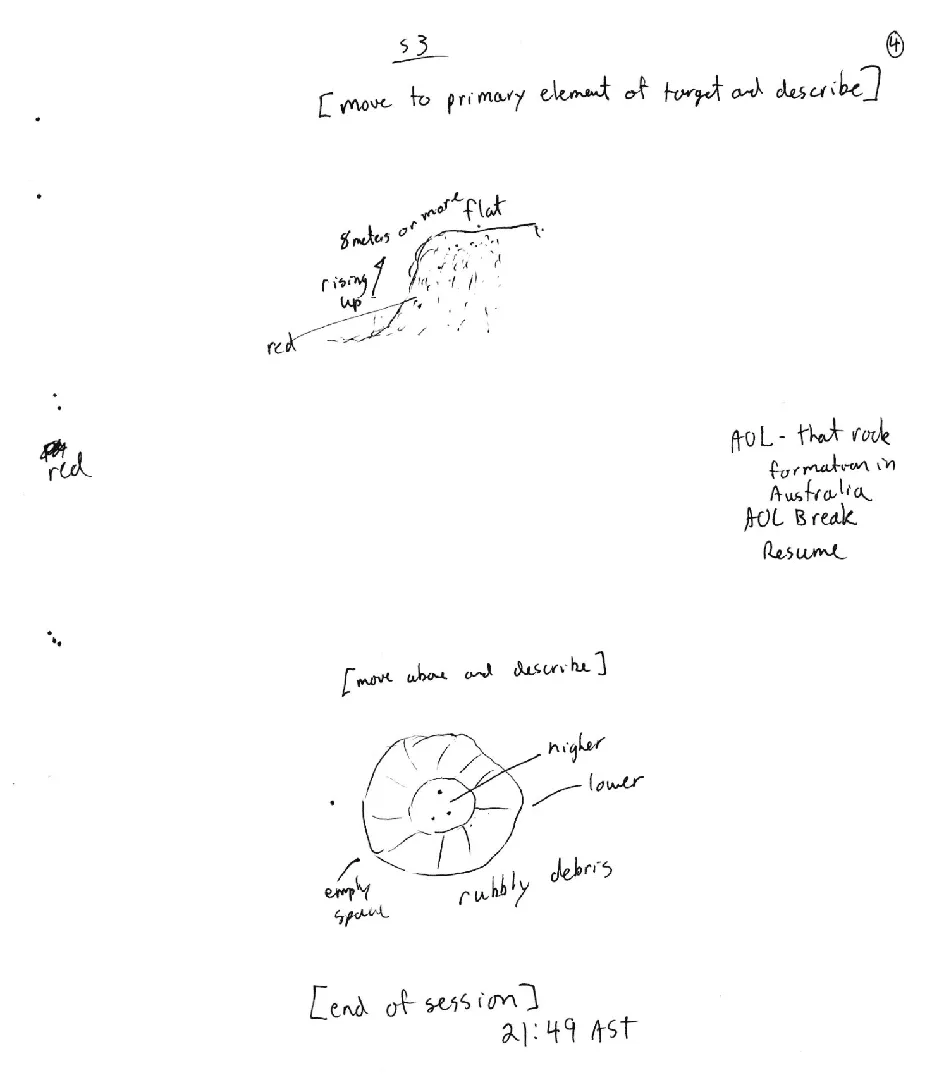 S3
4
[move to primary element of target and describe]
8 meters or more
flat
rising
up
red
red
AOL - that rock
formation in
Australia
AOL Break
Resume
[move above and describe]
higher
lower
empty
space
rubbly debris
[end of session]
21:49 AST